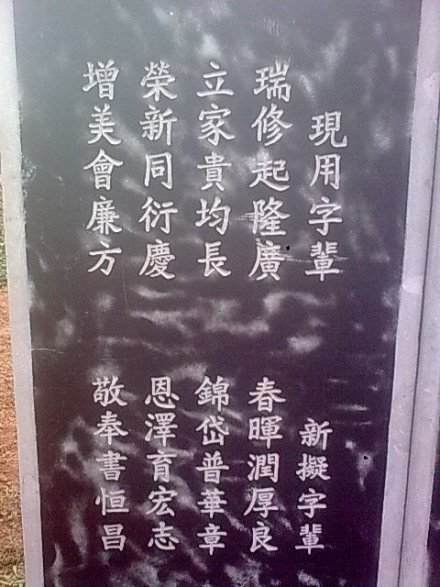 現用字輩
瑞修起隆廣
立家貴均長
榮新同衍慶
增美會廉方
新擬字輩
春暉潤厚良
錦岱普華章
恩澤育宏志
敬奉書恒昌